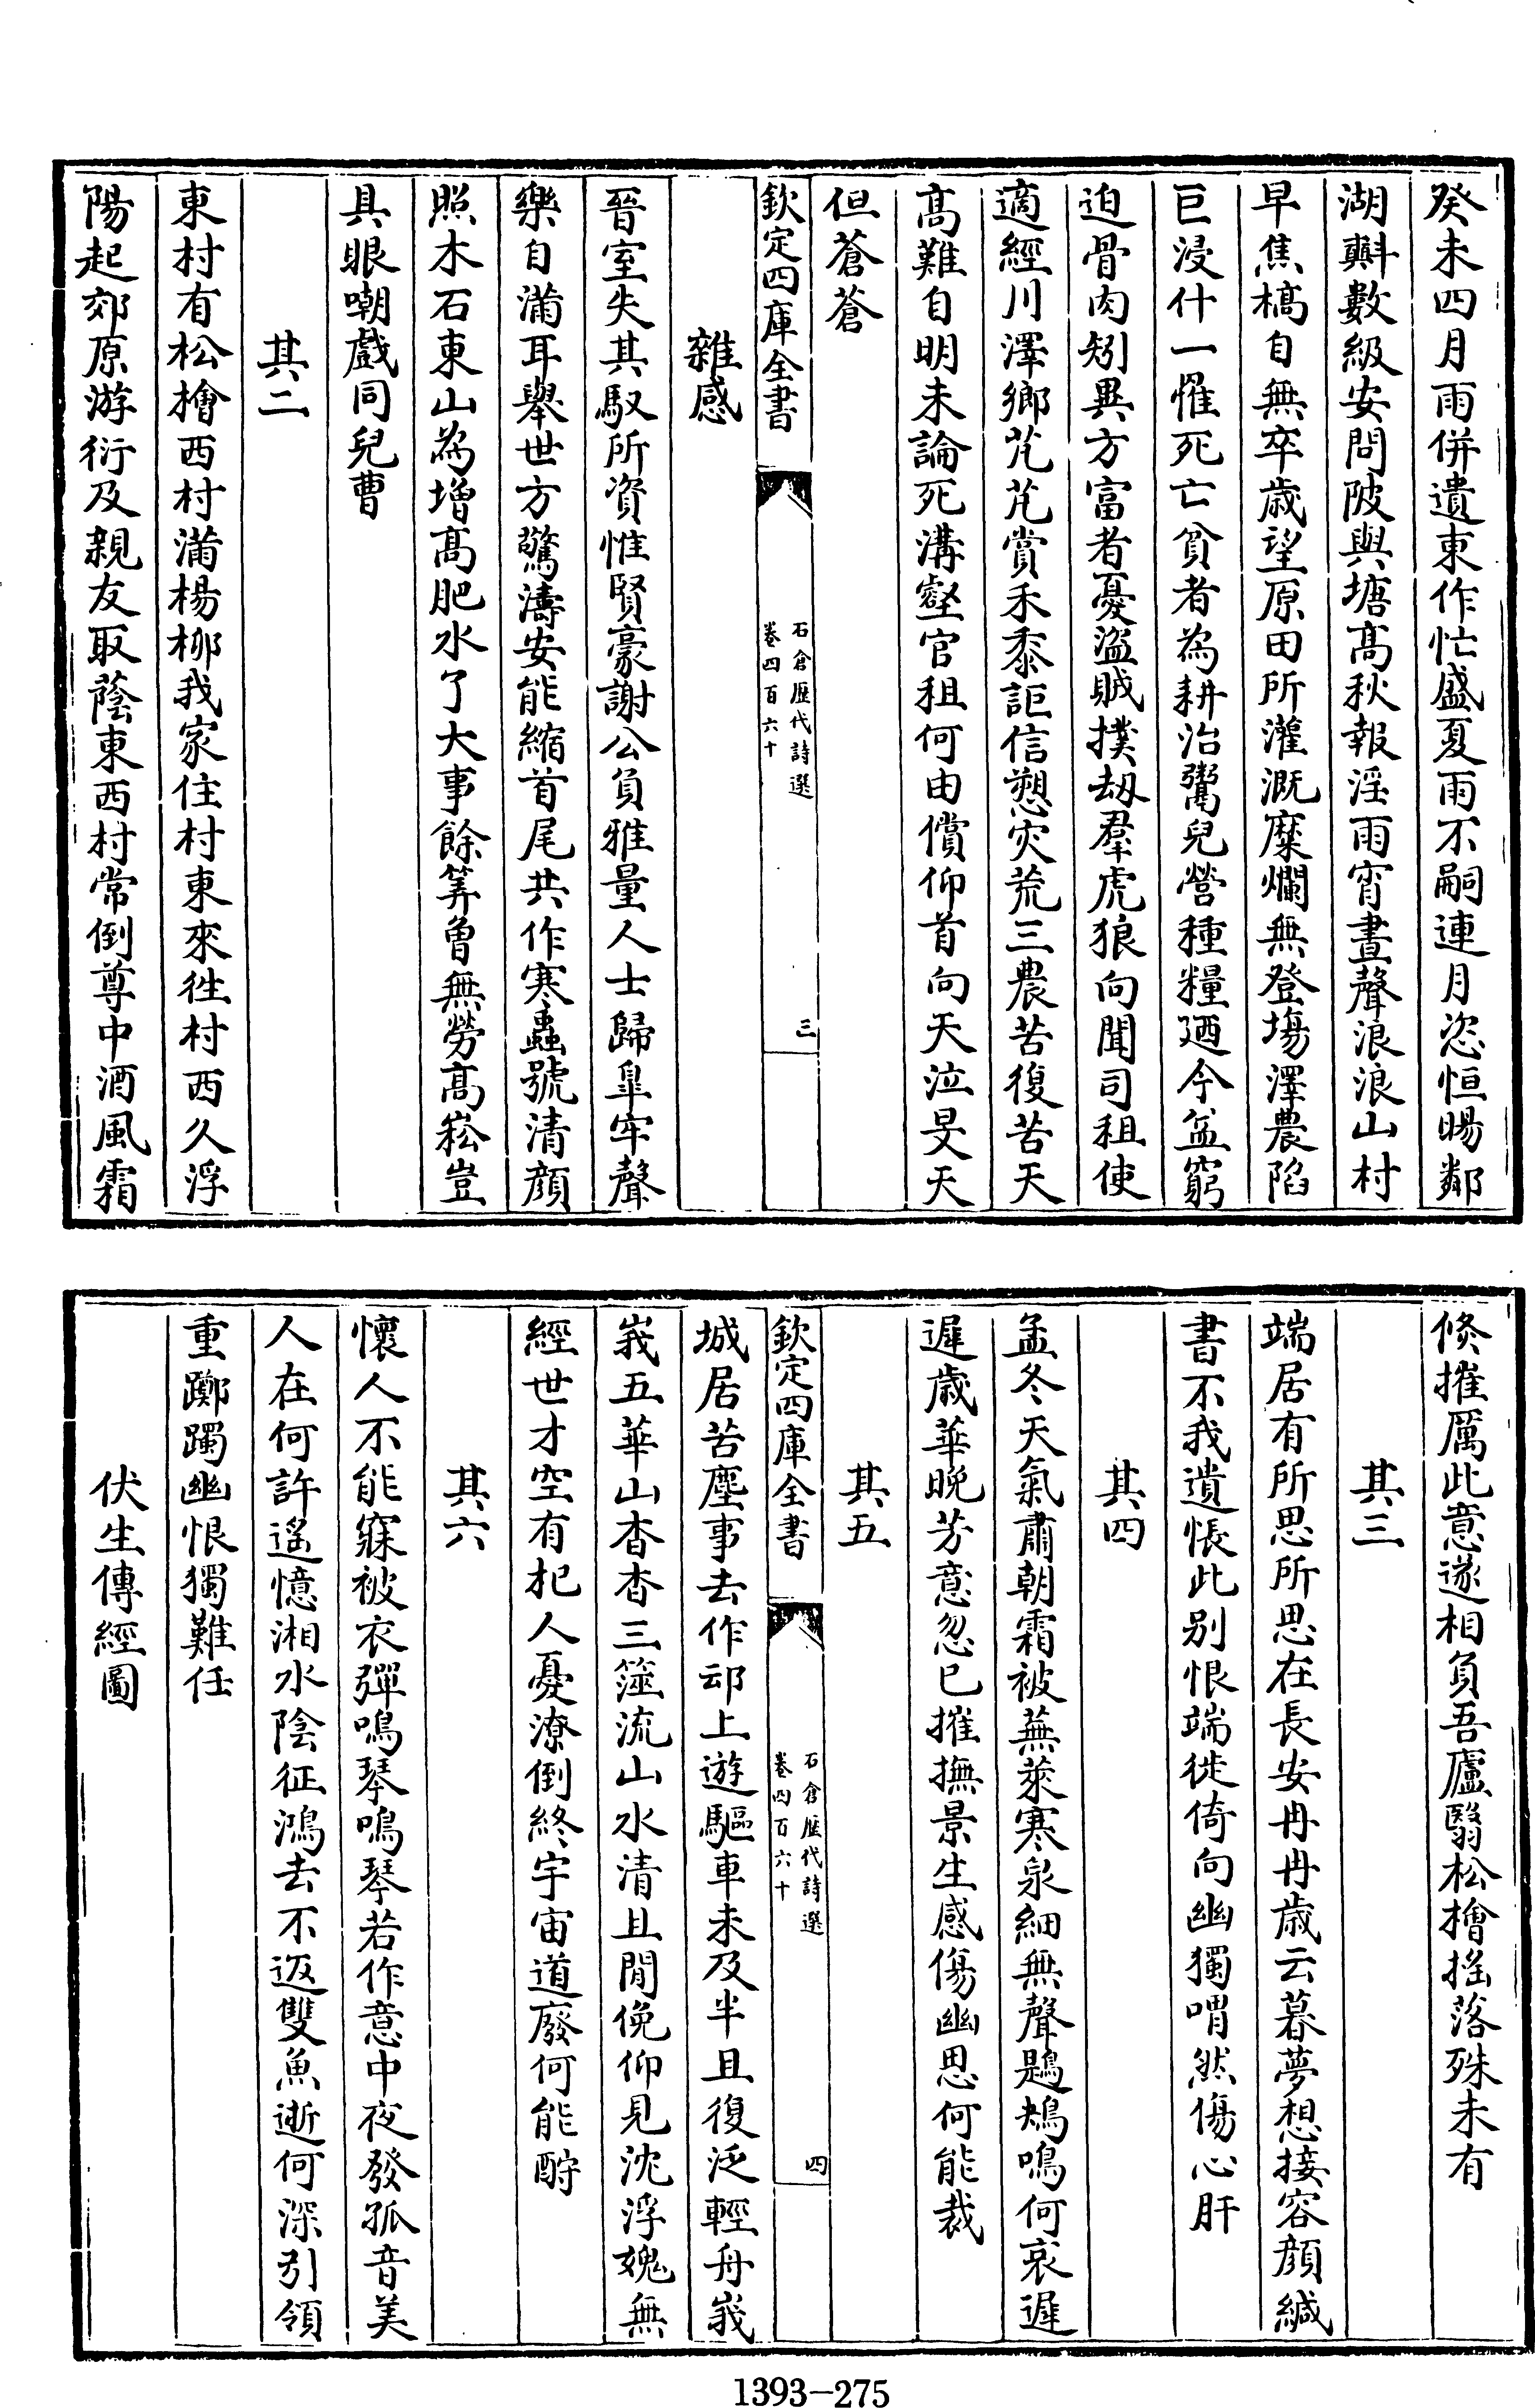 癸未四月雨併遺東作忙盛夏雨不嗣連月恣恒暘鄰
湖㪺數級安問陂與塘髙秋報淫雨宵晝聲浪浪山村
早焦槁自無卒歳望原田所灌溉糜爛無登塲澤農陷
巨浸什一罹死亡貧者為耕治鬻兒營種糧廼今盆窮
迫骨肉矧異方富者憂盜賊撲刼羣虎狼向聞司租使
適經川澤鄉芃芃賞禾黍詎信愬灾荒三農苦復苦天
髙難自明未論死溝壑官租何由償仰首向天泣旻天
但蒼蒼
欽定四庫全書
石倉歴代詩選
卷四百六十
三
雜感
晉室失其馭所資惟賢豪謝公負雅量人士歸皐牢聲
樂自滿耳舉世方驚濤安能縮首尾共作寒蟲號清顔
照木石東山為增髙肥水了大事餘筭曾無勞髙崧豈
具眼嘲戲同兒曹
其二
東村有松檜西村滿楊栁我家住村東來徃村西久浮
陽起郊原游衍及親友取蔭東西村常倒尊中酒風霜
倐摧厲此意遂相負吾廬翳松檜揺落殊未有
其三
端居有所思所思在長安冉冉歳云暮夢想接容顔緘
書不我遺悵此别恨端徙倚向幽獨喟然傷心肝
其四
孟冬天氣肅朝霜被蕪萊寒泉細無聲鶗鴂鳴何哀遲
遲歳華晚芳意忽已摧撫景生感傷幽思何能裁
欽定四庫全書
石倉歴代詩選
卷四百六十
四
其五
城居苦塵事去作邙上遊驅車未及半且復泛輕舟峩
峩五華山杳杳三簭流山水清且閒俛仰見沈浮媿無
經世才空有杞人憂潦倒終宇宙道廢何能酧
其六
懷人不能寐被衣彈鳴琴鳴琴若作意中夜發孤音美
人在何許遥憶湘水隂征鴻去不返雙魚逝何深引領
重躑躅幽恨獨難任
伏生傳經圖
1393-275